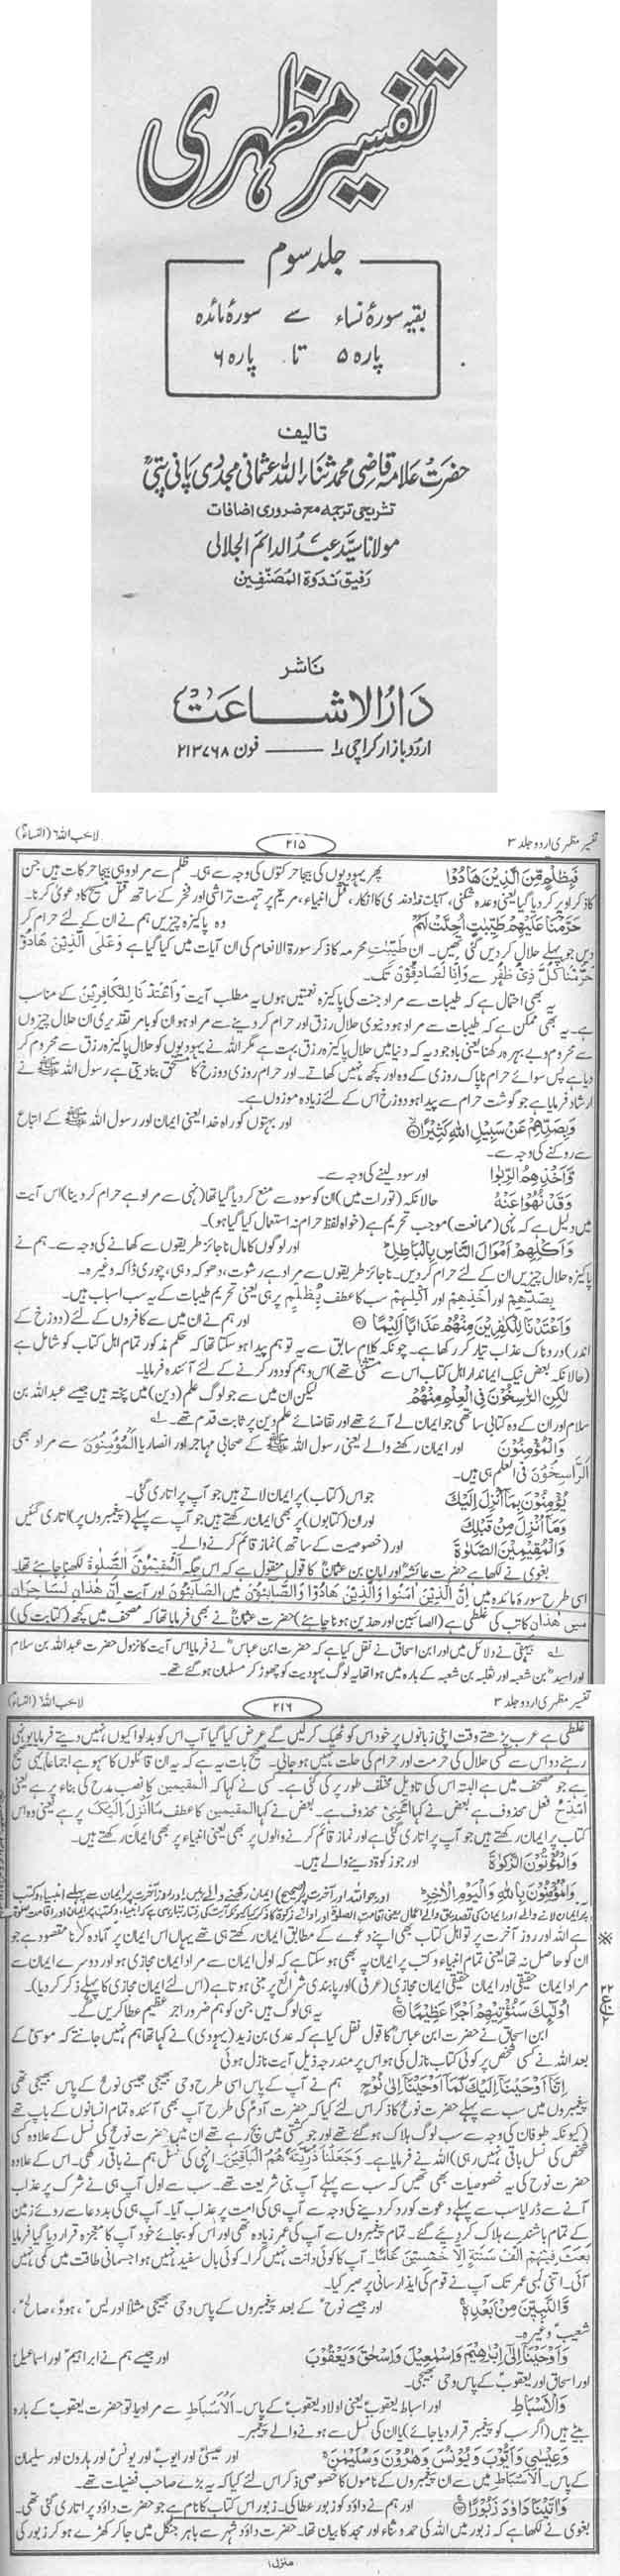 تفسیر مظہری
جلد سوم
بقیہ سورۂ نساء سے سورۂ مائدہ
پارہ ۵ تا پارہ ۶
تالیف
حضرت علامہ قاضی محمد ثناء اللہ عثمانی مجددی پانی پتیؒ
تشریحی ترجمہ مع ضروری اضافات
مولانا سید عبد الدائم الجلالی
رفیق ندوۃ المصنفین
ناشر
دار الاشاعت
اردو بازار کراچی ۱ — فون ۲۱۳۷۶۸
تفسیر مظہری اردو جلد ۳ ۲۱۵ لا یحب اللہ ۶ (النساء)
فَبِظُلْمٍ مِّنَ الَّذِيْنَ هَادُوْا پھر یہودیوں کی بیجا حرکتوں کی وجہ سے ہی۔ ظلم سے مراد وہی بیجا حرکات ہیں جن
کا ذکر اوپر کر دیا گیا یعنی وعدہ شکنی، آیات خداوندی کا انکار، قتل انبیاء، مریمؑ پر تہمت تراشی اور فخر کے ساتھ قتل مسیح کا دعویٰ کرنا۔
حَرَّمْنَا عَلَيْهِمْ طَيِّبٰتٍ اُحِلَّتْ لَهُمْ وہ پاکیزہ چیزیں ہم نے ان کے لئے حرام کر
دیں جو پہلے حلال کر دیں گئی تھیں۔ ان طَيِّبٰت محرمہ کا ذکر سورۃ الانعام کی ان آیات میں کیا گیا ہے وَعَلَى الَّذِيْنَ هَادُوْا
حَرَّمْنَا كُلَّ ذِيْ ظُفُرٍ سے وَاِنَّا لَصَادِقُوْنَ تک۔
یہ بھی احتمال ہے کہ طیبات سے مراد جنت کی پاکیزہ نعمتیں ہوں یہ مطلب آیت وَاَعْتَدْنَا لِلْكَافِرِيْنَ کے مناسب
ہے۔ یہ بھی ممکن ہے کہ طیبات سے مراد ہو دنیوی حلال رزق اور حرام کر دینے سے مراد ہو ان کو بامر تقدیری ان حلال چیزوں
سے محروم و بے بہرہ رکھنا یعنی باوجودیہ کہ دنیا میں حلال پاکیزہ رزق بہت ہے مگر اللہ نے یہودیوں کو حلال پاکیزہ رزق سے محروم کر
دیا ہے پس سوائے حرام ناپاک روزی کے وہ اور کچھ نہیں کھاتے۔ اور حرام روزی دوزخ کا مستحق بنا دیتی ہے رسول اللہ ﷺ نے
ارشاد فرمایا ہے جو گوشت حرام سے پیدا ہو دوزخ اس کے لئے زیادہ موزوں ہے۔
وَبِصَدِّهِمْ عَنْ سَبِيْلِ اللّٰهِ كَثِيْرًا اور بہتوں کو راہ خدا یعنی ایمان اور رسول اللہ ﷺ کے اتباع
سے روکنے کی وجہ سے۔
وَّاَخْذِهِمُ الرِّبٰوا اور سود لینے کی وجہ سے۔
وَقَدْ نُهُوْا عَنْهُ حالانکہ (تورات میں) ان کو سود سے منع کر دیا گیا تھا (نہی سے مراد ہے حرام کر دینا) اس آیت
میں دلیل ہے کہ نہی (ممانعت) موجب تحریم ہے (خواہ لفظ حرام نہ استعمال کیا گیا ہو)۔
وَاَكْلِهِمْ اَمْوَالَ النَّاسِ بِالْبَاطِلِ اور لوگوں کا مال ناجائز طریقوں سے کھانے کی وجہ سے۔ ہم نے
پاکیزہ حلال چیزیں ان کے لئے حرام کر دیں۔ ناجائز طریقوں سے مراد ہے رشوت، دھوکہ دہی، چوری ڈاکہ وغیرہ۔
بصدھم اور اخذھم اور اکلھم سب کا عطف بظلم پر ہی یعنی تحریم طیبات کے یہ سب اسباب ہیں۔
وَاَعْتَدْنَا لِلْكٰفِرِيْنَ مِنْهُمْ عَذَابًا اَلِيْمًا اور ہم نے ان میں سے کافروں کے لئے (دوزخ کے
اندر) دردناک عذاب تیار کر رکھا ہے۔ چونکہ کلام سابق سے یہ توہم پیدا ہو سکتا تھا کہ حکم مذکور تمام اہل کتاب کو شامل ہے
(حالانکہ بعض نیک ایماندار اہل کتاب اس سے مستثنیٰ تھے) اس وہم کو دور کرنے کے لئے آئندہ فرمایا۔
لٰكِنِ الرّٰسِخُوْنَ فِى الْعِلْمِ مِنْهُمْ لیکن ان میں سے جو لوگ علم (دین) میں پختہ ہیں جیسے عبد اللہ بن
سلام اور ان کے وہ کتابی ساتھی جو ایمان لے آئے تھے اور تقاضائے علم دین پر ثابت قدم تھے۔ ۱؎
وَالْمُؤْمِنُوْنَ اور ایمان رکھنے والے یعنی رسول اللہ ﷺ کے صحابی مہاجر اور انصار یا اَلْمُؤْمِنُوْنَ سے مراد بھی
اَلرَّاسِخُوْنَ فی العلم ہی ہیں۔
يُؤْمِنُوْنَ بِمَا اُنْزِلَ اِلَيْكَ جو اس (کتاب) پر ایمان لاتے ہیں جو آپ پر اتاری گئی۔
وَمَا اُنْزِلَ مِنْ قَبْلِكَ اور ان (کتابوں) پر بھی ایمان رکھتے ہیں جو آپ سے پہلے (پیغمبروں پر) اتاری گئیں
وَالْمُقِيْمِيْنَ الصَّلٰوةَ اور (خصوصیت کے ساتھ) نماز قائم کرنے والے۔
بغوی نے لکھا ہے کہ حضرت عائشہؓ اور ابان بن عثمانؓ کا قول منقول ہے کہ اس جگہ المقیمون الصلٰوۃ لکھنا چاہئے تھا۔
اسی طرح سورۃ مائدہ میں اِنَّ الَّذِيْنَ اٰمَنُوْا وَالَّذِيْنَ هَادُوْا وَالصَّابِئُوْنَ میں الصَّابِئُوْنَ اور آیت اِنْ هٰذَانِ لَسَاحِرَانِ
میں ھذان کاتب کی غلطی ہے (الصائبین اور ھذین ہونا چاہئے) حضرت عثمانؓ نے بھی فرمایا تھا کہ مصحف میں کچھ (کتابت کی)
۱؎ بیہقی نے دلائل میں اور ابن اسحاق نے نقل کیا ہے کہ حضرت ابن عباسؓ نے فرمایا اس آیت کا نزول حضرت عبد اللہ بن سلام
اور اسیدؓ بن شعبہ اور ثعلبہ بن شعبہ کے بارہ میں ہوا تھا یہ لوگ یہودیت کو چھوڑ کر مسلمان ہو گئے تھے۔
تفسیر مظہری اردو جلد ۳ ۲۱۶ لا یحب اللہ ۶ (النساء)
غلطی ہے عرب پڑھتے وقت اپنی زبانوں پر خود اس کو ٹھیک کر لیں گے عرض کیا گیا آپ اس کو بدلوا کیوں نہیں دیتے فرمایا یونہی
رہنے دو اس سے کسی حلال کی حرمت اور حرام کی حلت نہیں ہو جاتی۔ صحیح بات یہ ہے کہ یہ ان قائلوں کا سہو ہے اجماعاً یہی صحیح
ہے جو مصحف میں ہے البتہ اس کی تاویل مختلف طور پر کی گئی ہے۔ کسی نے کہا کہ المقیمین کا نصب مدح کی بناء پر ہے یعنی
امدح فعل محذوف ہے بعض نے کہا اعنی محذوف ہے۔ بعض نے کہا المقیمین کا عطف ما انزل الیک پر ہے یعنی وہ اس
کتاب پر ایمان رکھتے ہیں جو آپ پر اتاری گئی ہے اور نماز قائم کرنے والوں پر بھی یعنی انبیاء پر بھی ایمان رکھتے ہیں۔
وَالْمُؤْتُوْنَ الزَّكٰوةَ اور جو زکوٰۃ دینے والے ہیں۔
وَالْمُؤْمِنُوْنَ بِاللّٰهِ وَالْيَوْمِ الْاٰخِرِ اور جو اللہ اور آخرت پر (صحیح) ایمان رکھنے والے ہیں
ہے اللہ اور روز آخرت پر تو اہل کتاب بھی اپنے دعوے کے مطابق ایمان رکھتے ہی تھے یہاں اس ایمان پر آمادہ کرنا مقصود ہے جو
ان کو حاصل نہ تھا یعنی تمام انبیاء و کتب پر ایمان یہ بھی ہو سکتا ہے کہ اول ایمان سے مراد ایمان مجازی ہو اور دوسرے ایمان سے
مراد ایمان حقیقی اور ایمان حقیقی ایمان مجازی (عرفی) اور پابندی شرائع پر مبنی ہوتا ہے (اس لئے ایمان مجازی کا پہلے ذکر کر دیا)۔
اُولٰٓئِكَ سَنُؤْتِيْهِمْ اَجْرًا عَظِيْمًا یہ ہی لوگ ہیں جن کو ہم ضرور اجر عظیم عطا کریں گے۔
ابن اسحاق نے حضرت ابن عباسؓ کا قول نقل کیا ہے کہ عدی بن زید (یہودی) نے کہا تھا ہم نہیں جانتے کہ موسیٰؑ کے
بعد اللہ نے کسی شخص پر کوئی کتاب نازل کی ہو اس پر مندرجہ ذیل آیت نازل ہوئی
اِنَّا اَوْحَيْنَا اِلَيْكَ كَمَا اَوْحَيْنَا اِلٰى نُوْحٍ ہم نے آپ کے پاس اسی طرح وحی بھیجی جیسی نوحؑ کے پاس بھیجی تھی
پیغمبروں میں سب سے پہلے حضرت نوحؑ کا ذکر اس لئے کیا کہ حضرت آدمؑ کی طرح آپ بھی آئندہ تمام انسانوں کے باپ تھے
(کیونکہ طوفان کی وجہ سے سب لوگ ہلاک ہو گئے تھے اور جو کشتی میں بچ رہے تھے ان میں حضرت نوحؑ کی نسل کے علاوہ کسی
شخص کی نسل باقی نہیں رہی) اللہ نے فرمایا ہے۔ وَجَعَلْنَا ذُرِّيَّتَهٗ هُمُ الْبَاقِيْنَ۔ انہی کی نسل ہم نے باقی رکھی۔ اس کے علاوہ
حضرت نوحؑ کی یہ خصوصیات بھی تھیں کہ سب سے پہلے آپ ہی نبی شریعت تھے۔ سب سے اول آپ ہی نے شرک پر عذاب
آنے سے ڈرایا سب سے پہلے دعوت کو رد کر دینے کی وجہ سے آپ ہی کی امت پر عذاب آیا۔ آپ ہی کی بددعا سے روئے زمین
کے تمام باشندے ہلاک کر دیئے گئے۔ تمام پیغمبروں سے آپ کی عمر زیادہ تھی اور اس کو بجائے خود آپ کا معجزہ قرار دیا گیا فرمایا
فِيْهِمْ اَلْفَ سَنَةٍ اِلَّا خَمْسِيْنَ عَامًا۔ آپ کا کوئی دانت نہیں گرا۔ کوئی بال سفید نہیں ہوا جسمانی طاقت میں کمی نہیں
آئی۔ اتنی لمبی عمر تک آپ نے قوم کی ایذا رسانی پر صبر کیا۔
وَّالنَّبِيِّيْنَ مِنْ بَعْدِهٖ اور جیسے نوحؑ کے بعد پیغمبروں کے پاس وحی بھیجی مثلاً ادریسؑ، ہودؑ، صالحؑ،
شعیبؑ وغیرہ۔
وَاَوْحَيْنَا اِلٰى اِبْرٰهِيْمَ وَاِسْمٰعِيْلَ وَاِسْحٰقَ وَيَعْقُوْبَ اور جیسے ہم نے ابراہیمؑ اور اسماعیلؑ
اور اسحاق اور یعقوبؑ کے پاس وحی بھیجی۔
وَالْاَسْبَاطِ اور اسباط یعقوبؑ یعنی اولاد یعقوبؑ کے پاس۔ اَلْاَسْبَاطِ سے مراد یا تو حضرت یعقوبؑ کے بارہ
بیٹے ہیں (اگر سب کو پیغمبر قرار دیا جائے) یا ان کی نسل سے ہونے والے پیغمبر۔
وَعِيْسٰى وَاَيُّوْبَ وَيُوْنُسَ وَهٰرُوْنَ وَسُلَيْمٰنَ اور عیسیٰؑ اور ایوبؑ اور یونسؑ اور ہارون اور سلیمان
کے پاس۔ اَلْاَسْبَاطِ میں سے ان پیغمبروں کے ناموں کا خصوصی ذکر اس لئے کیا کہ یہ بڑے صاحب فضیلت تھے۔
وَاٰتَيْنَا دَاوٗدَ زَبُوْرًا اور ہم نے داؤد کو زبور عطا کی۔ زبور اس کتاب کا نام ہے جو حضرت داؤدؑ پر اتاری گئی تھی۔
بغوی نے لکھا ہے کہ زبور میں اللہ کی حمد و ثناء اور مجد کا بیان تھا۔ حضرت داؤدؑ شہر سے باہر جنگل میں جا کر کھڑے ہو کر زبور کی
منزل ۱